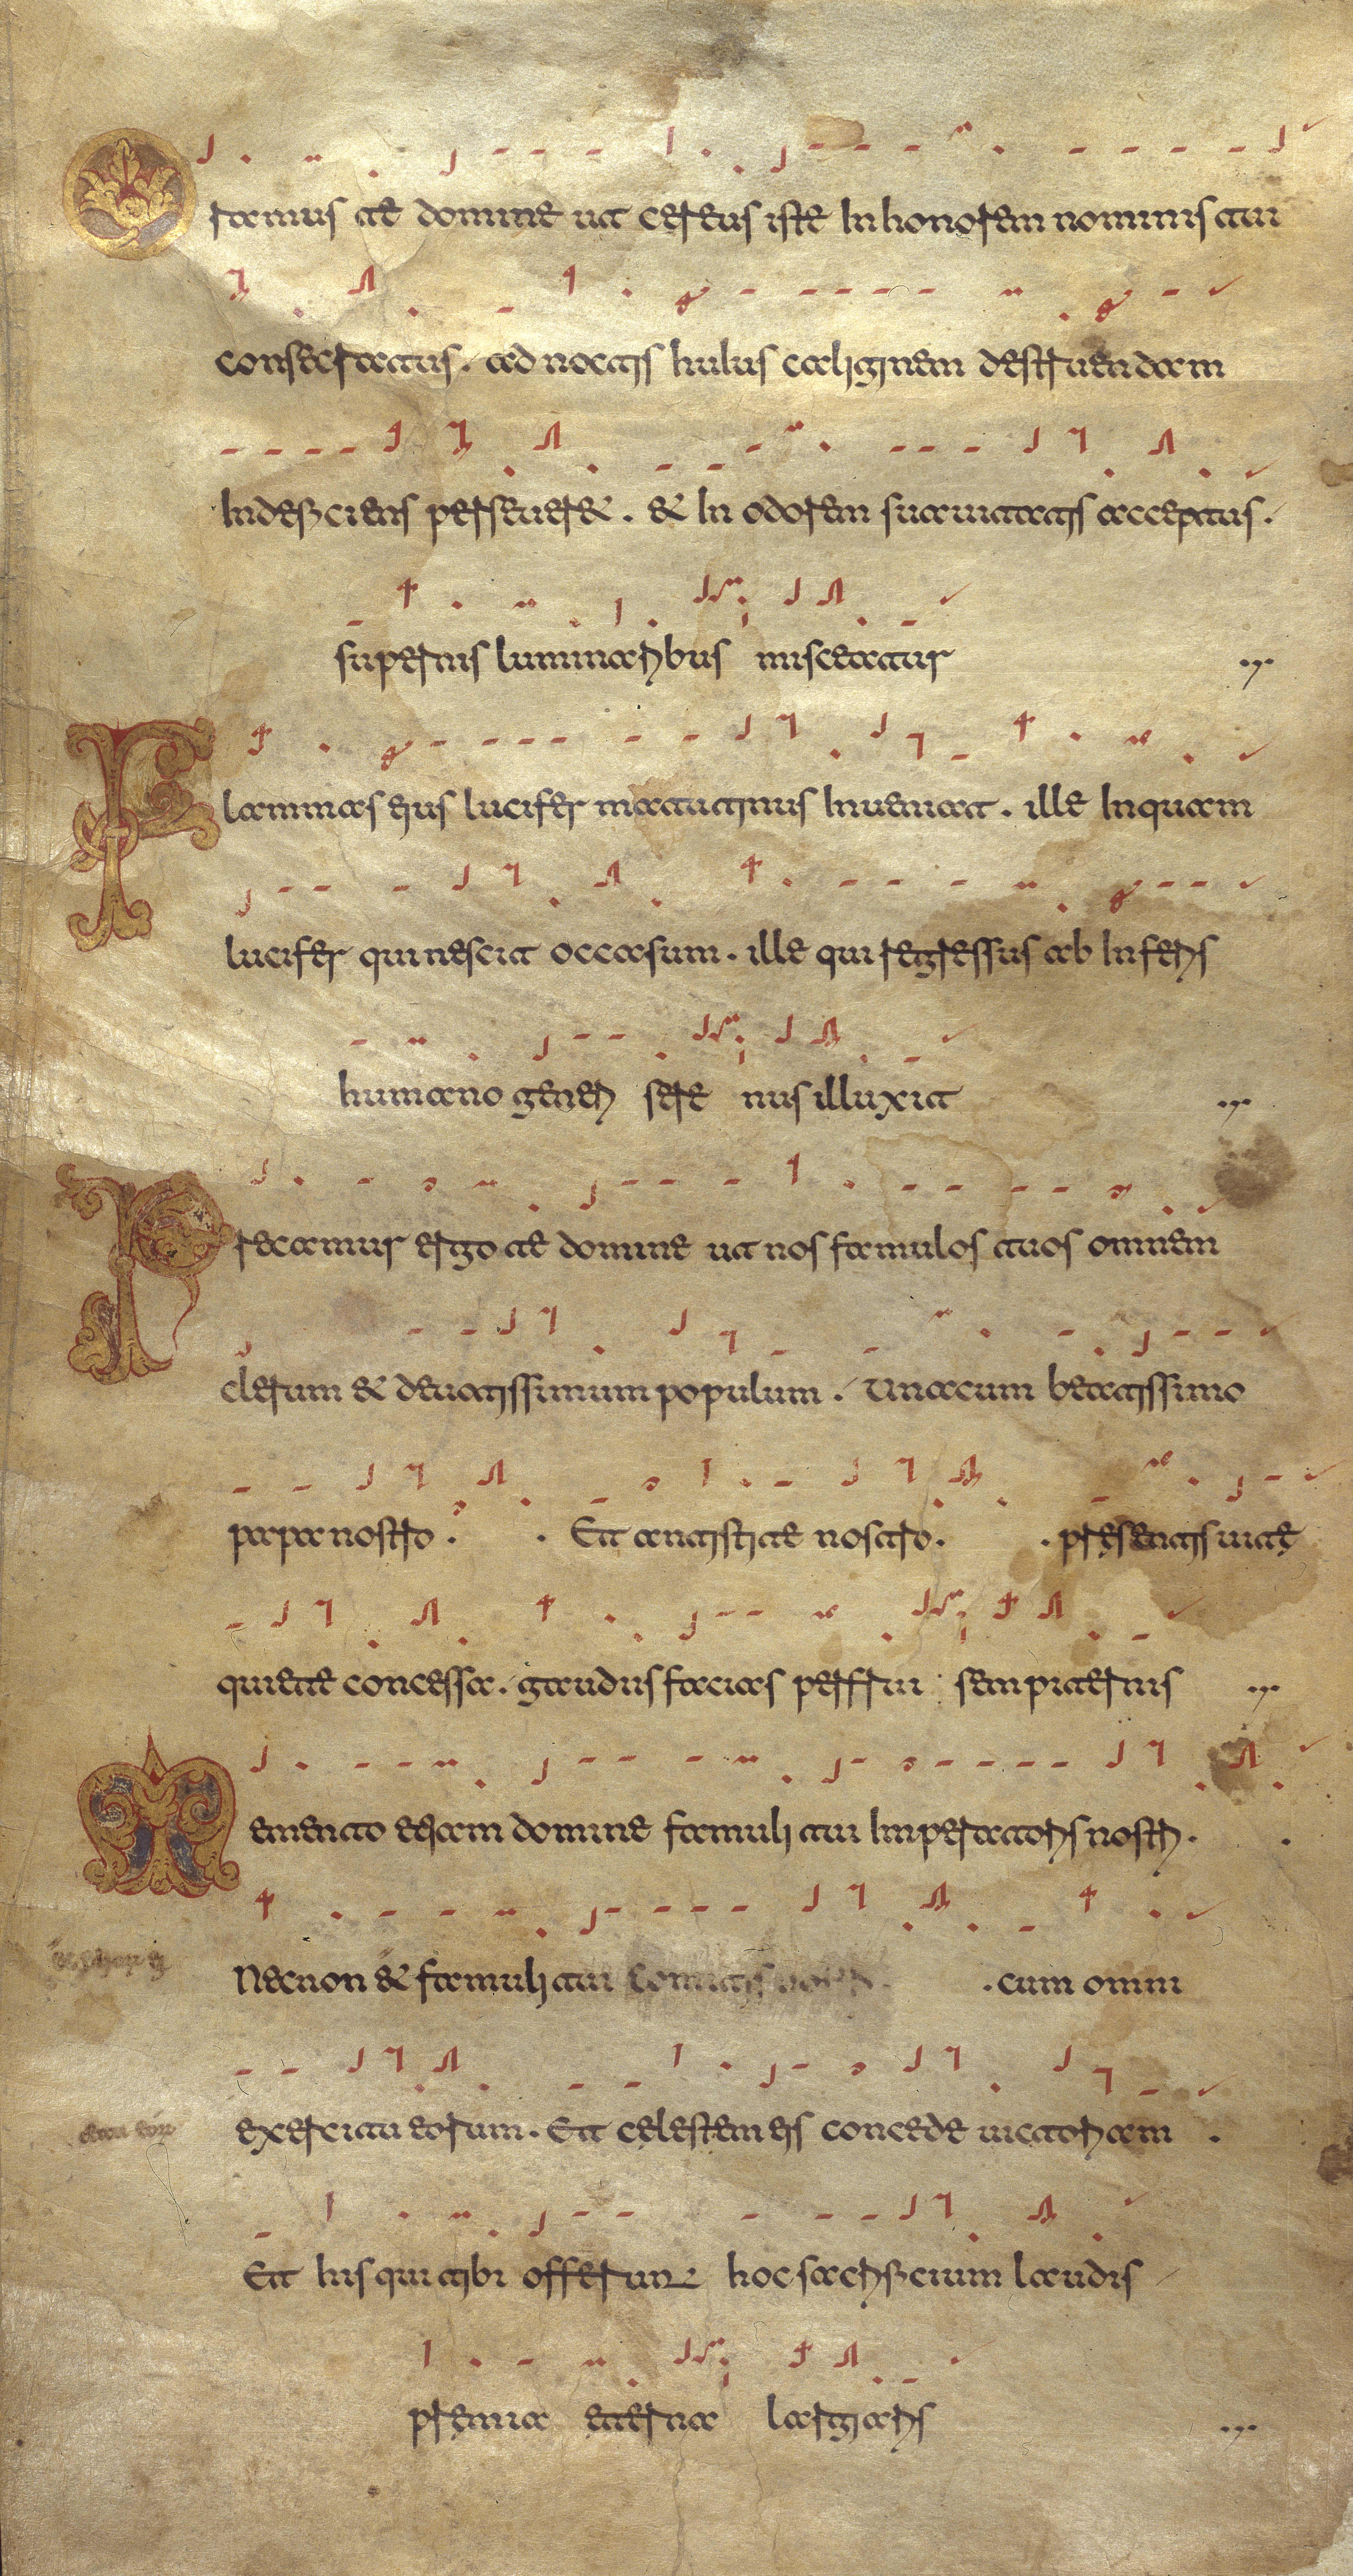 Oramus te domine ut cereus iste In honorem nominis tui
consecratus. ad noctis huIus caliginem destruendam
Indeficiens perseueret. & In odorem suauitatis acceptus.
supernis luminaribus misceatur
Flammas eius lucifer matutinus Inueniat. ille Inquam
lucifer qui nescit occasum. ille qui regressus ab Inferis
humano generi sere nus illuxit
Precamur ergo te domine ut nos famulos tuos omnem
clerum & deuotissimum populum. Una cum beatissimo
papa nostro . . Et antistite nostro. . presentis uite
quiete concessa. gaudiis facias perfrui sempiternis
Memento etiam domine famuli tui Imperatoris nostri. .
Necnon & famuli tui comitis nostri. . cum omni
exercitu eorum. Et celestem eis concede uictoriam .
Et his qui tibi offerunt hoc sacrificium laudis
premia eterna largiaris